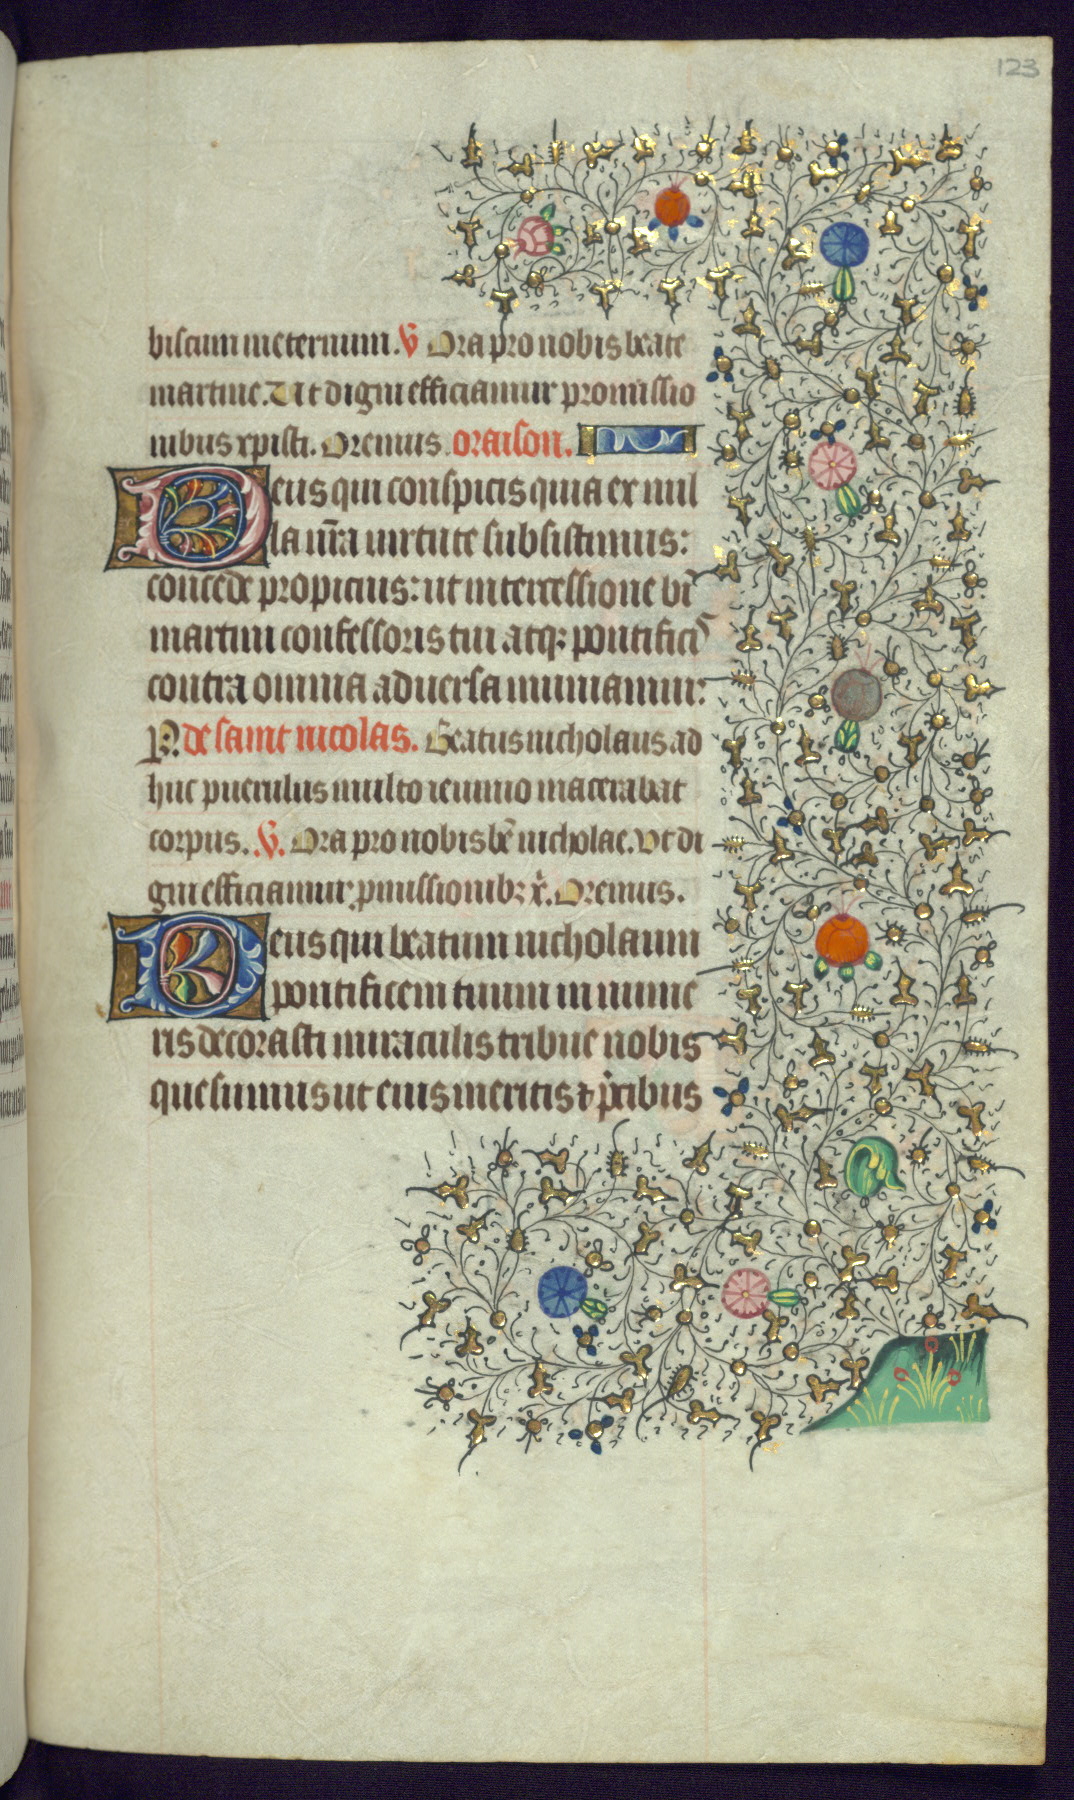 123
biscum ineternum. V Ora pro nobis beate
martine. Ut digni efficiamur promissio
nibus xpisti. Oremus. oraison.
Deus qui conspicis quia ex nul
la nr̄a uirtute subsistimus:
concede propicius: ut intercessione bt̄i
martini confessoris tui atqꝫ pontificis
contra omnia aduersa muniamur:
de saint nicolas. Beatus nicholaus ad
huc puerulus multo ieiunio macerabat
corpus. V. Ora pro nobis bē nicholae. Vt di
gni efficiamur ꝓmissionibꝫ x̄. Oremus.
Deus qui beatum nicholaum
pontificem tuum innume
ris decorasti miraculis tribue nobis
quesumus ut eius meritis ⁊ p̄cibus